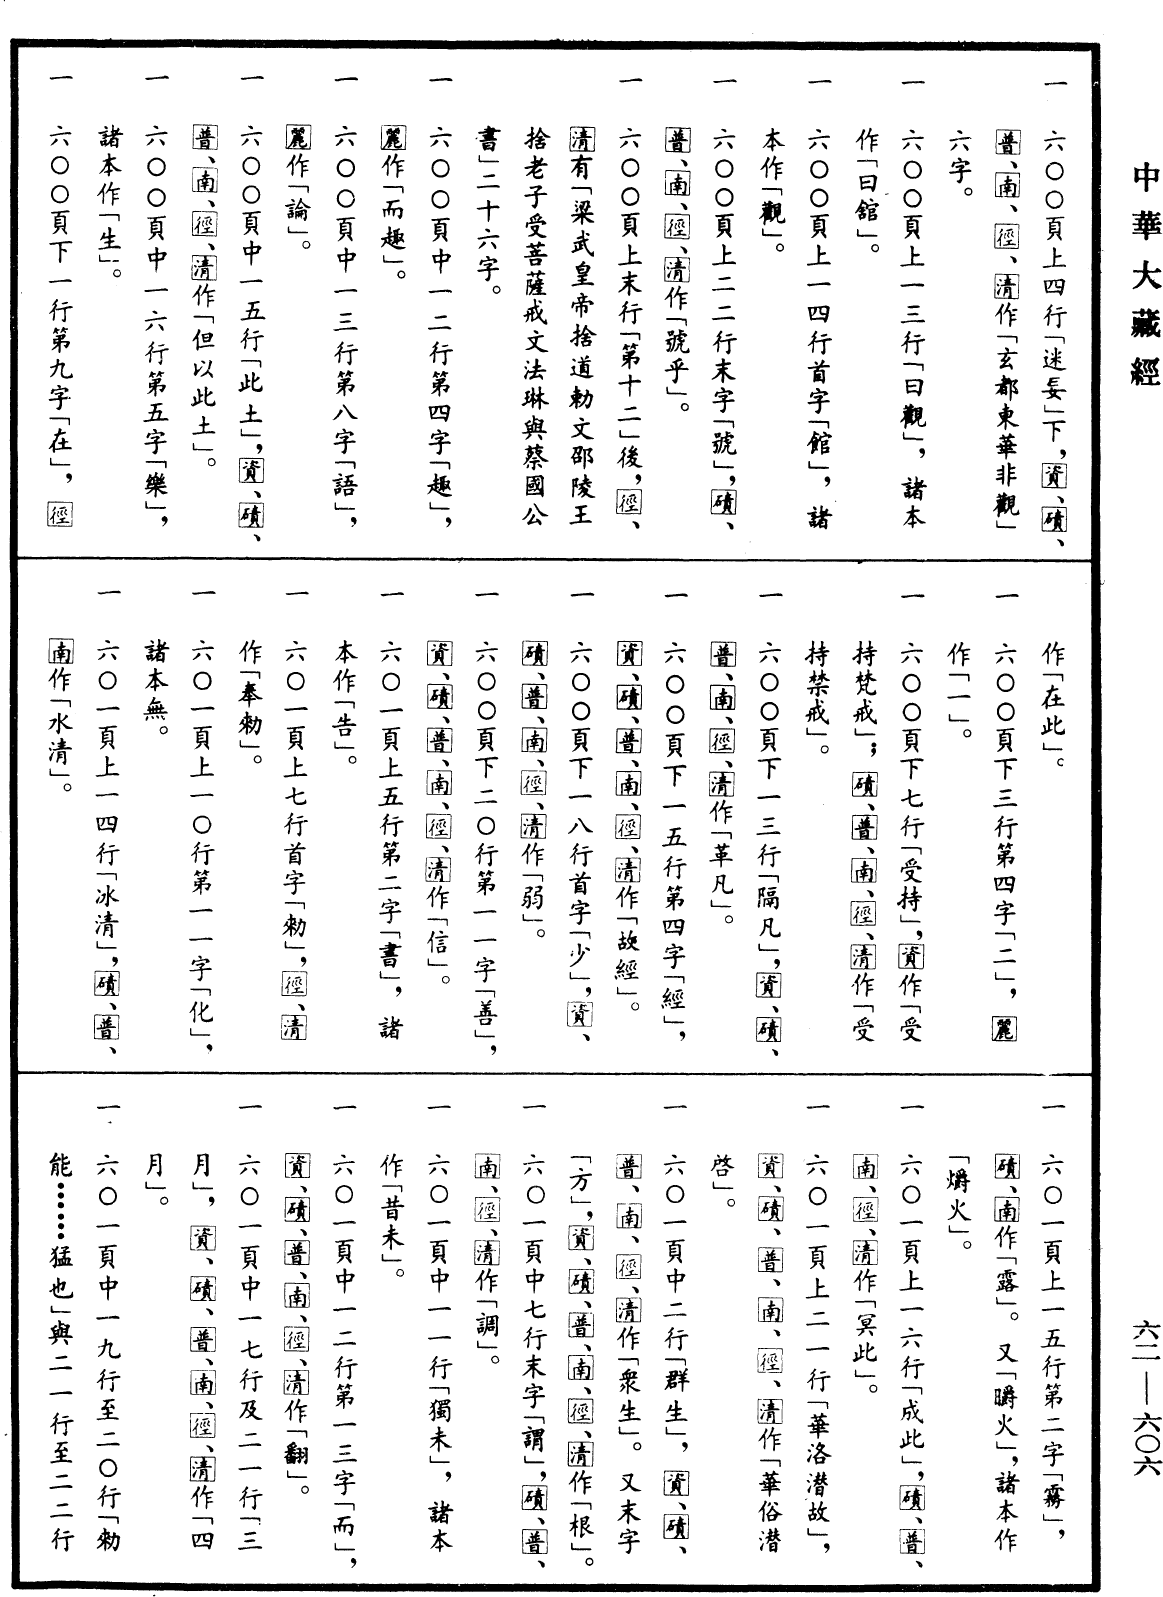 中華大藏經
六二—六〇六
一 六〇〇頁上四行「迷妄」下，資、磧、
普、南、徑、清作「玄都東華非觀」
六字。
一 六〇〇頁上一三行「曰觀」，諸本
作「曰舘」。
一 六〇〇頁上一四行首字「館」，諸
本作「觀」。
一 六〇〇頁上二二行末字「號」，磧、
普、南、徑、清作「號乎」。
一 六〇〇頁上末行「第十二」後，徑、
清有「梁武皇帝捨道勅文邵陵王
捨老子受菩薩戒文法琳與蔡國公
書」二十六字。
一 六〇〇頁中一二行第四字「趣」，
麗作「而趣」。
一 六〇〇頁中一三行第八字「語」，
麗作「論」。
一 六〇〇頁中一五行「此土」，資、磧、
普、南、徑、清作「但以此土」。
一 六〇〇頁中一六行第五字「樂」，
諸本作「生」。
一 六〇〇頁下一行第九字「在」，徑
作「在此」。
一 六〇〇頁下三行第四字「二」，麗
作「一」。
一 六〇〇頁下七行「受持」，資作「受
持梵戒」；磧、普、南、徑、清作「受
持禁戒」。
一 六〇〇頁下一三行「隔凡」，資、磧、
普、南、徑、清作「革凡」。
一 六〇〇頁下一五行第四字「經」，
資、磧、普、南、徑、清作「故經」。
一 六〇〇頁下一八行首字「少」，資、
磧、普、南、徑、清作「弱」。
一 六〇〇頁下二〇行第一一字「善」，
資、磧、普、南、徑、清作「信」。
一 六〇一頁上五行第二字「書」，諸
本作「告」。
一 六〇一頁上七行首字「勅」，徑、清
作「奉勅」。
一 六〇一頁上一〇行第一一字「化」，
諸本無。
一 六〇一頁上一四行「冰清」，磧、普、
南作「水清」。
一 六〇一頁上一五行第二字「霧」，
磧、南作「露」。又「嚼火」，諸本作
「爝火」。
一 六〇一頁上一六行「成此」，磧、普、
南、徑、清作「冥此」。
一 六〇一頁上二一行「華洛潜故」，
資、磧、普、南、徑、清作「華俗潜
啓」。
一 六〇一頁中二行「群生」，資、磧、
普、南、徑、清作「衆生」。又末字
「方」，資、磧、普、南、徑、清作「根」。
一 六〇一頁中七行末字「謂」，磧、普、
南、徑、清作「調」。
一 六〇一頁中一一行「獨未」，諸本
作「昔未」。
一 六〇一頁中一二行第一三字「而」，
資、磧、普、南、徑、清作「翻」。
一 六〇一頁中一七行及二一行「三
月」，資、磧、普、南、徑、清作「四
月」。
一 六〇一頁中一九行至二〇行「勅
能……猛也」與二一行至二二行